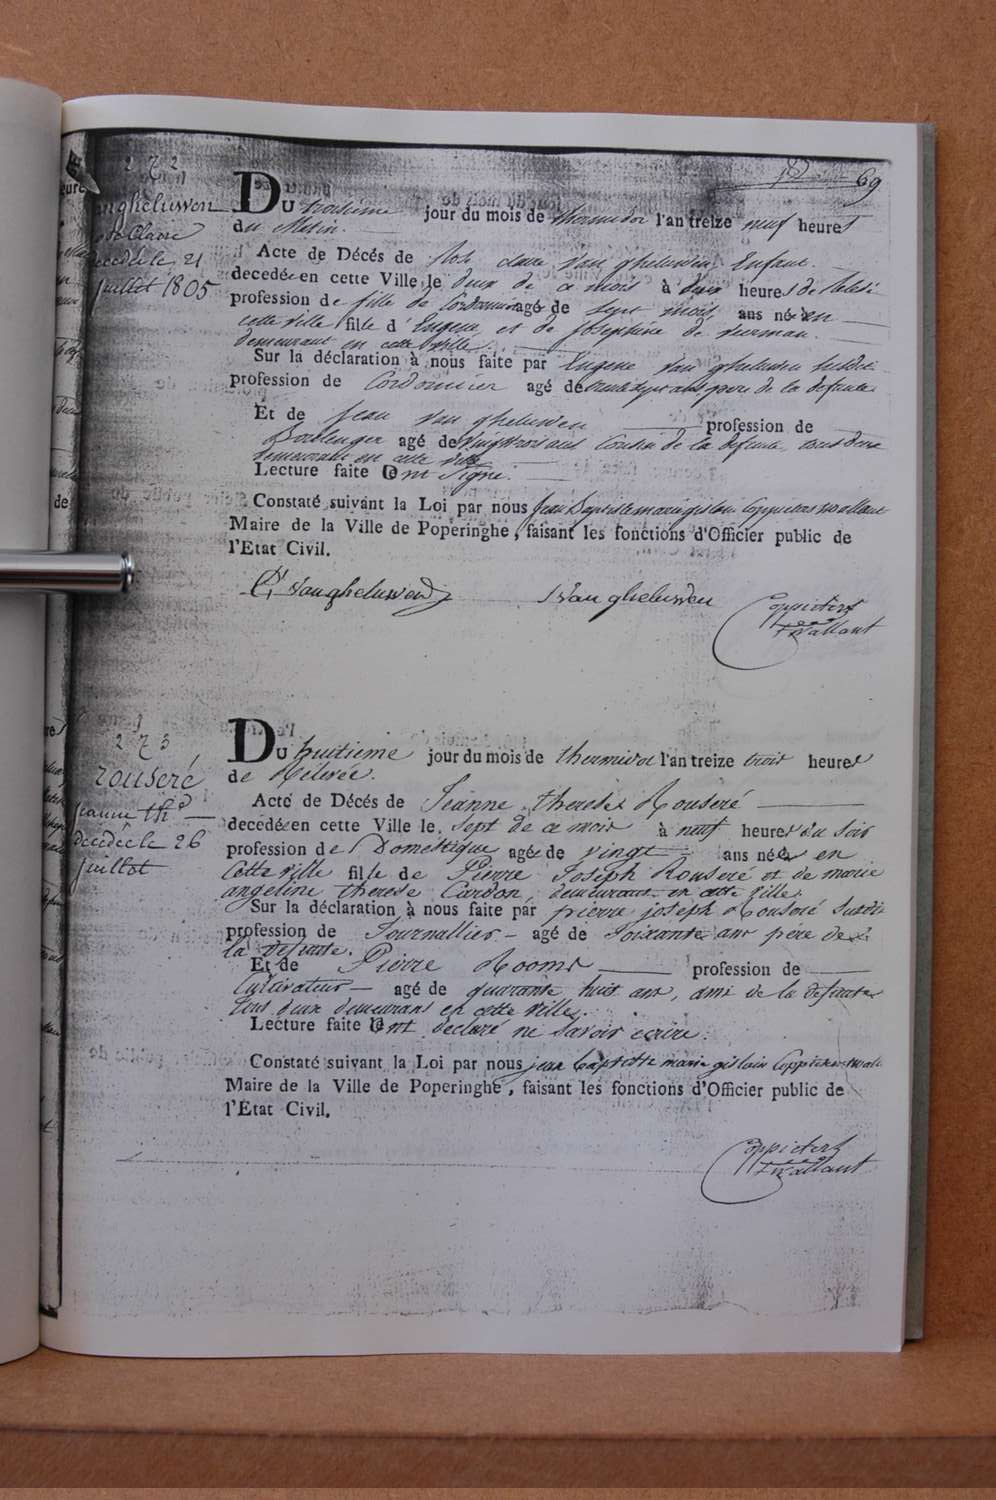 69
272
Du troisieme jour du mois de thermidor l'an treize neuf heures
du Matin.
Acte de Décés de Rose claire van gheluwen Enfant
decedée en cette Ville le deux de ce mois à deux heures de
profession de fille de Cordonnier agé de sept mois ans née en
cette ville fille d'Eugene et de Josephine de
demeurant en cette ville.
Sur la déclaration à nous faite par Eugene van gheluwen susdit
profession de Cordonnier agé de ans pere de la defunte
Et de Jean van gheluwen profession de
Boulenger agé de vingt trois ans Cousin de la defunte, tous deux
demeurant en cette ville
Lecture faite ont signé.
Constaté suivant la Loi par nous Jean Baptiste marie gislain Coppieters wallant
Maire de la Ville de Poperinghe, faisant les fonctions d'Officier public de
l'Etat Civil.
Vangheluwen
Vangheluwen
Coppieters
Twallant
gheluwen
Claire
decedé le 21
juillet 1805
273
rouseré
jeanne th
decedée le 26
juillet
Du huitieme jour du mois de thermidor l'an treize trois heures
de Relevée.
Acte de Décés de Jeanne therese Rouseré
decedée en cette Ville le sept de ce mois à neuf heures du soir
profession de Domestique agée de vingt ans née en
cette ville fille de Pierre Joseph Rouseré et de marie
angeline therese Cardon, demeurant en cette ville.
Sur la déclaration à nous faite par pierre joseph Rouseré susdit
profession de Journallier agé de soixante ans pere de
la defunte.
Et de Pierre Rooms profession de
Cultivateur agé de quarante huit ans, ami de la defunte
tous deux demeurans en cette ville.
Lecture faite ont declaré ne savoir ecrire.
Constaté suivant la Loi par nous jean baptiste marie gislain Coppieters
Maire de la Ville de Poperinghe, faisant les fonctions d'Officier public de
l'Etat Civil.
Coppieters
Twallant